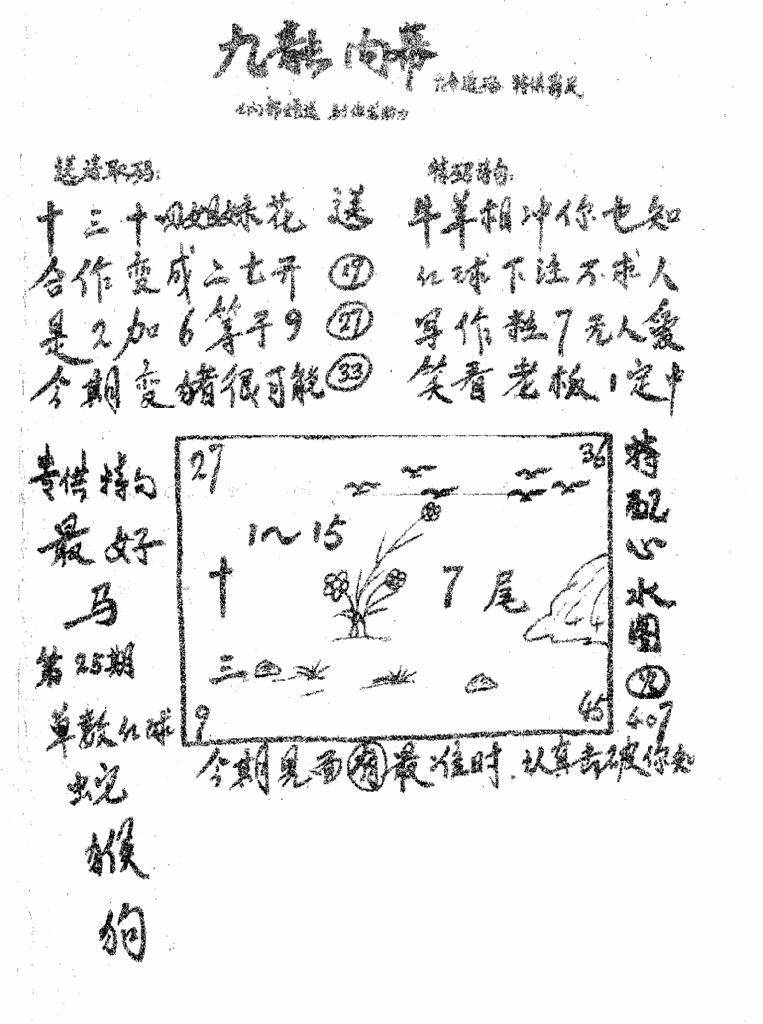 九龍内幕
送诗取码:
十三十四姐妹花 送
合作变成二七开 19
是2加6等于9 27
今期变猪很可能 33
特码诗句:
牛羊相冲你也知
红球下注不求人
写作粒7无人爱
笑看老板1定中
专供特句
最好
马
第25期
单数红球
蛇
猴
狗
27
36
1~15
十
7尾
三
9
45
44
特配心水图
407
今期见面有最准时.认真击破你知